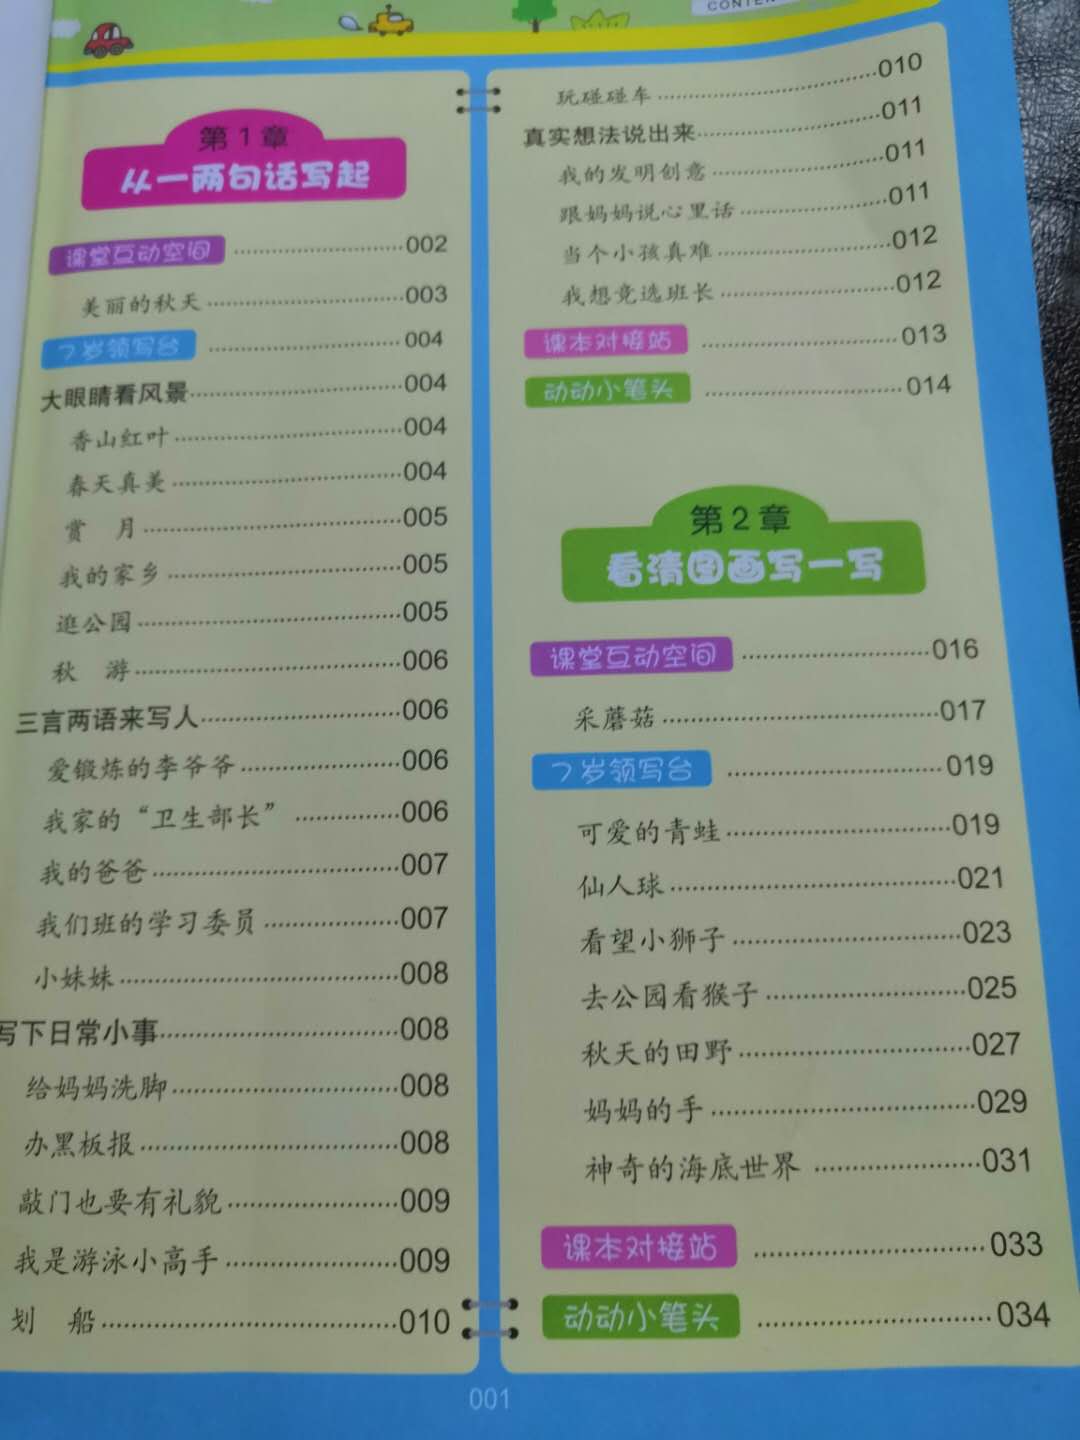 CONTEN
第1章
从一两句话写起
课堂互动空间 ··· 002
美丽的秋天 ··· 003
7岁领写台 ··· 004
大眼睛看风景 ··· 004
香山红叶 ··· 004
春天真美 ··· 004
赏 月 ··· 005
我的家乡 ··· 005
逛公园 ··· 005
秋 游 ··· 006
三言两语来写人 ··· 006
爱锻炼的李爷爷 ··· 006
我家的“卫生部长” ··· 006
我的爸爸 ··· 007
我们班的学习委员 ··· 007
小妹妹 ··· 008
写下日常小事 ··· 008
给妈妈洗脚 ··· 008
办黑板报 ··· 008
敲门也要有礼貌 ··· 009
我是游泳小高手 ··· 009
划 船 ··· 010
玩碰碰车 ··· 010
真实想法说出来 ··· 011
我的发明创意 ··· 011
跟妈妈说心里话 ··· 011
当个小孩真难 ··· 012
我想竞选班长 ··· 012
课本对接站 ··· 013
动动小笔头 ··· 014
第2章
看清图画写一写
课堂互动空间 ··· 016
采蘑菇 ··· 017
7岁领写台 ··· 019
可爱的青蛙 ··· 019
仙人球 ··· 021
看望小狮子 ··· 023
去公园看猴子 ··· 025
秋天的田野 ··· 027
妈妈的手 ··· 029
神奇的海底世界 ··· 031
课本对接站 ··· 033
动动小笔头 ··· 034
001